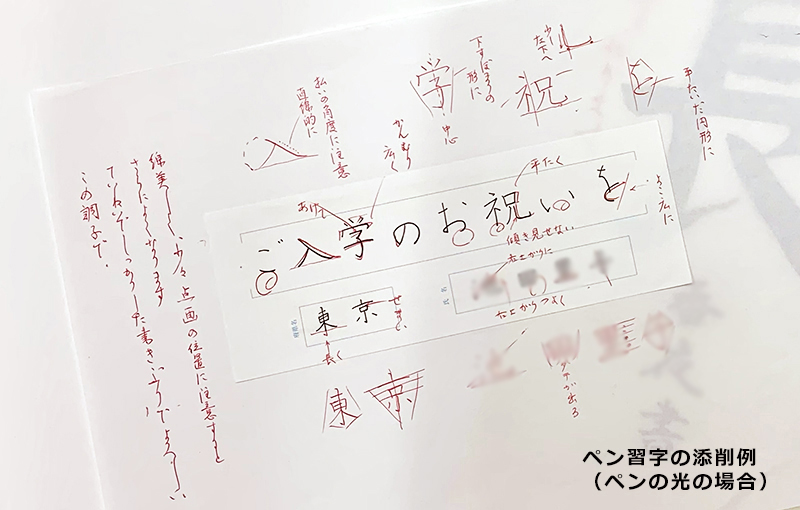 ご入学のお祝いを
東京
都道府県名
氏名
学
中心
下すぼまりの
形に
祝
少し
た下へ
を
平たい円形に
払いの角度に注意
直線的に
かんむり
広く
平たく
あけて
よこ広に
傾き見せない
右上がりに
右上がりつよく
せまい
長く
東
京
タテが出る
線美しく、少々点画の位置に注意すると
さらによくなります
ていねいでしっかりした書きぶりでよろしい
この調子で。
ペン習字の添削例
（ペンの光の場合）